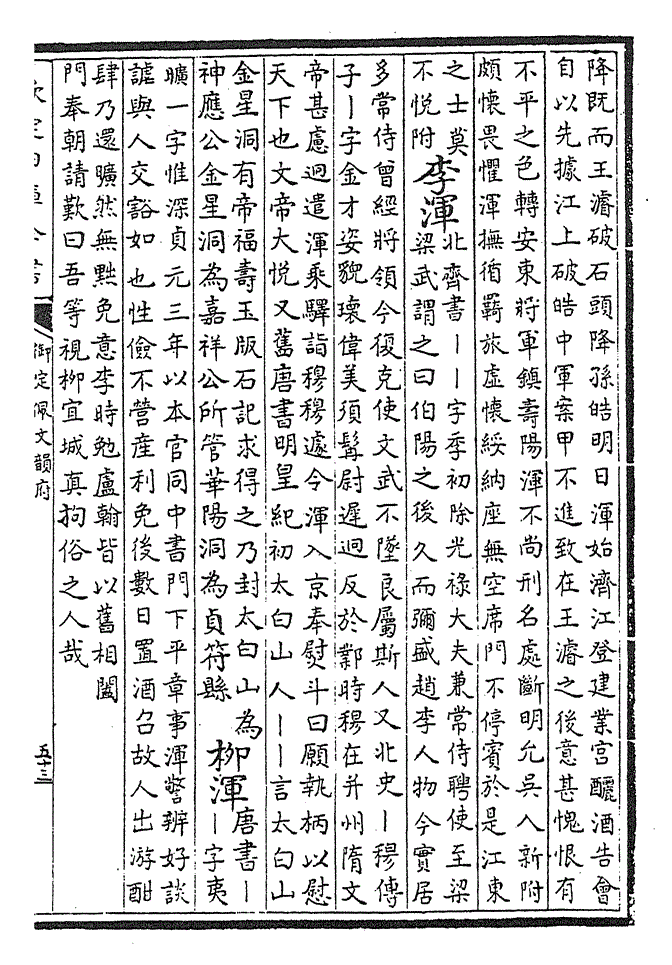 降既而王濬破石頭降孫皓明日渾始濟江登建業宮釃酒告會
自以先據江上破皓中軍案甲不進致在王濬之後意甚愧恨有
不平之色轉安東將軍鎮壽陽渾不尚刑名處斷明允吳人新附
頗懷畏懼渾撫循羇旅虛懷綏納座無空席門不停賓於是江東
之士莫
不悅附
李渾
北齊書丨丨字季初除光祿大夫兼常侍聘使至梁
梁武謂之曰伯陽之後久而彌盛趙李人物今實居
多常侍曾經將領今復克使文武不墜良屬斯人又北史丨穆傳
子丨字金才姿貌瓌偉美須髯尉遲迥反於鄴時穆在并州隋文
帝甚慮迥遣渾乘驛詣穆穆遽令渾入京奉熨斗曰願執柄以慰
天下也文帝大悅又舊唐書明皇紀初太白山人丨丨言太白山
金星洞有帝福壽玉版石記求得之乃封太白山為
神應公金星洞為嘉祥公所管華陽洞為貞符縣
柳渾
唐書丨
丨字夷
曠一字惟深貞元三年以本官同中書門下平章事渾警辨好談
謔與人交豁如也性儉不營産利免後數日置酒召故人出游酣
肆乃還曠然無黜免意李時勉盧翰皆以舊相闔
門奉朝請歎曰吾等視柳宜城真拘俗之人哉
欽定四庫全書
御定佩文韻府
五十三